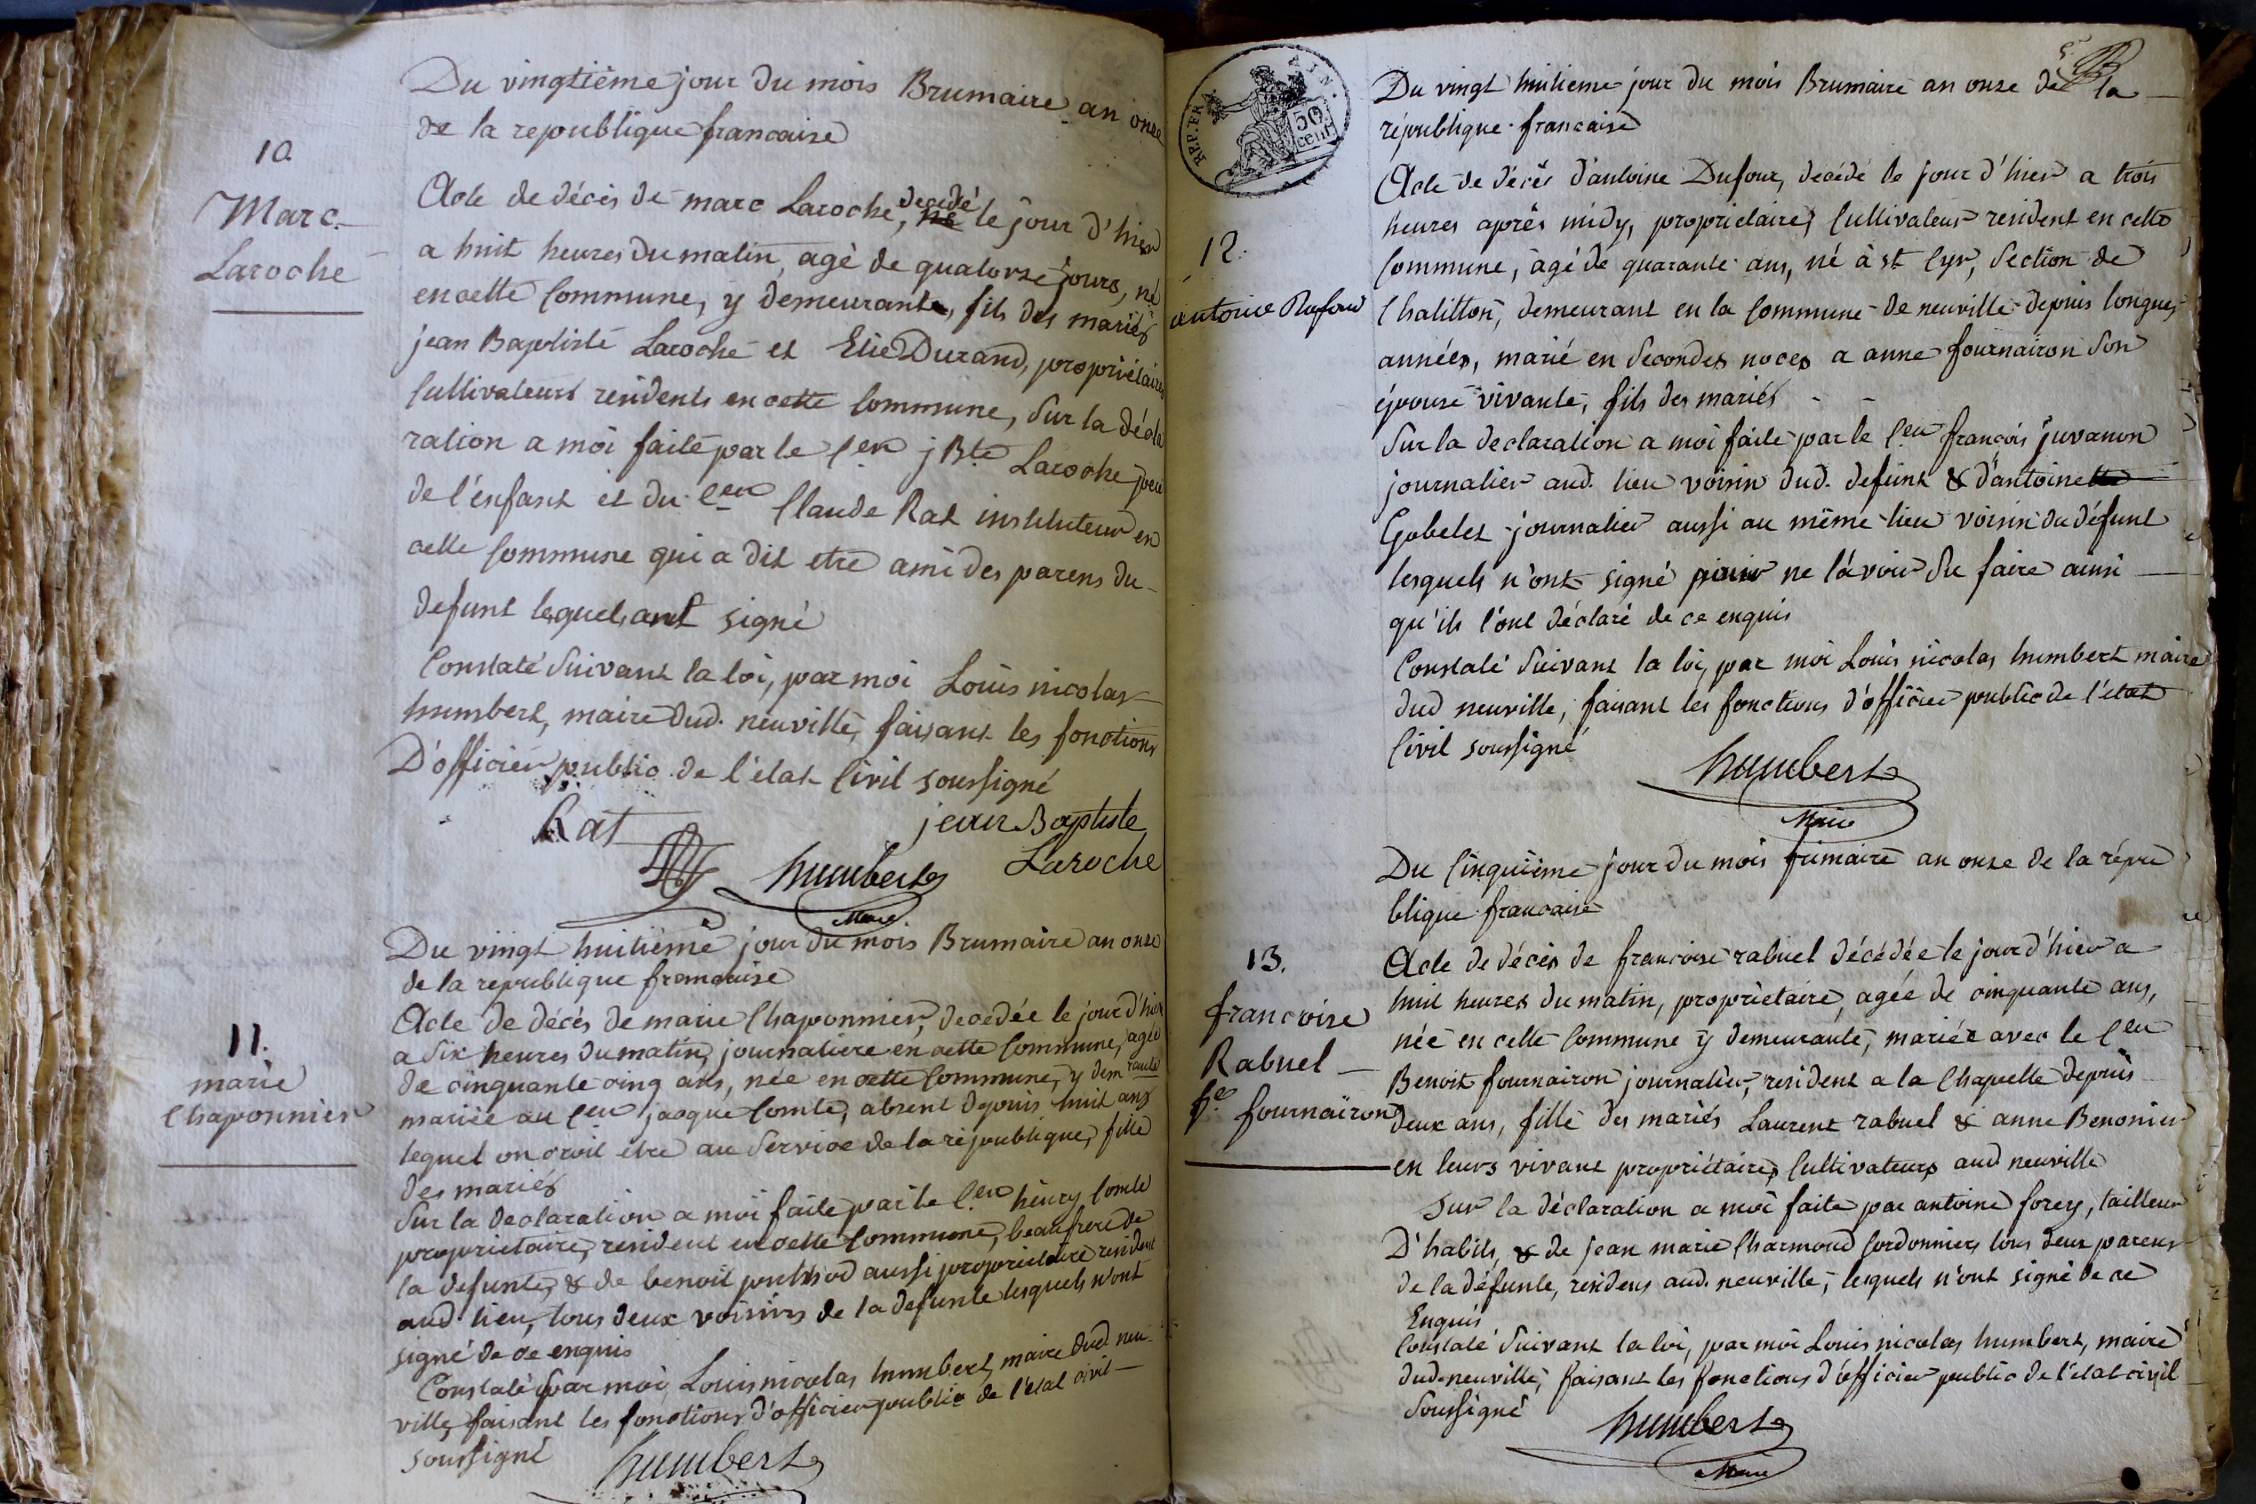 Du vingtième jour du mois Brumaire an onze
de la republique francaise
10
Marc
Laroche
Acte de décès de marc Laroche, decedé né le jour d'hier
a huit heures du matin, agé de quatorze jours, né
en cette Commune, y demeurant, fils des mariés
jean Baptiste Laroche et Elie Durand, propriétaires
Cultivateurs residents en cette Commune, Sur la décla
ration a moi faite par le Cen jBte Laroche pere
de l'enfant et du Cen Claude Rat instituteur en
cette Commune qui a dit etre ami des parens du
defunt lequel ont signé
Constaté Suivant la loi, par moi Louis nicolas
humbert, maire dud. neuville, faisant les fonctions
D'officier public de l'état Civil soussigné
Rat
jean Baptiste
Laroche
humbert
Maire
Du vingt huitième jour du mois Brumaire an onze
de la republique francaise
11.
marie
Chaponnier
Acte de décès de marie Chaponnier, decedée le jour d'hier
a Six heures du matin, journaliere en cette Commune, agée
de cinquante cinq ans, née en cette Commune, y demeurante
mariée au Cen jacque Comte, absent depuis huit ans
lequel on croit être au Service de la république, fille
des mariés
Sur la declaration a moi faite par le Cen henry Comte
proprietaire, resident en cette Commune, beaufrere de
la defunte, & de benoit aussi proprietaire resident
aud lieu, tous deux voisins de la defunte lesquels n'ont
signé de ce enquis
Constaté par moi Louis nicolas humbert, maire dud neu-
ville, faisant les fonctions d'officier public de l'état civil
soussigné
humbert
REP. FRA.
TIN.
50
cent
Du vingt huitieme jour du mois Brumaire an onze de la
république francaise
12.
antoine Dufour
Acte de décès d'antoine Dufour, decédé le jour d'hier a trois
heures après midy, proprietaire, Cultivateur resident en cette
Commune, âgé de quarante ans, né à st Cyr, Section de
Chatillon, demeurant en la Commune de neuville depuis longues
années, marié en Secondes noces a anne fournairon Son
épouse vivante, fils des mariés - -
Sur la declaration a moi faite par le Cen françois juvanon
journalier aud. lieu voisin dud. defunt & d'antoinette
Gobelet journalier aussi au même lieu voisin du défunt
lesquels n'ont signé pour ne l'avoir Su faire ainsi
qu'ils l'ont déclaré de ce enquis
Constaté Suivant la loi, par moi Louis nicolas humbert maire
dud neuville, faisant les fonctions d'officier public de l'état
Civil soussigné
humbert
Maire
Du Cinquième jour du mois frimaire an onze de la répu
blique francaise
13.
francoise
Rabuel
fe fournairon
Acte de décès de francoise rabuel décédée le jour d'hier a
huit heures du matin, propriètaire, agée de cinquante ans,
née en cette Commune y demeurante, mariée avec le Cen
Benoit fournairon journalier, resident a la Chapelle depuis
deux ans, fille des mariés Laurent rabuel & anne Benonier
en leurs vivant propriétaires Cultivateurs aud neuville
Sur la déclaration a moi faite par antoine forey, tailleur
D'habits, & de jean marie Charmond Cordonniers tous deux parens
de la défunte, residens aud. neuville, lesquels n'ont signé de ce
Enquis
Constaté Suivant la loi, par moi Louis nicolas humbert, maire
dud. neuville, faisant les fonctions d'officier public de l'état civil
Soussigné
humbert
Maire